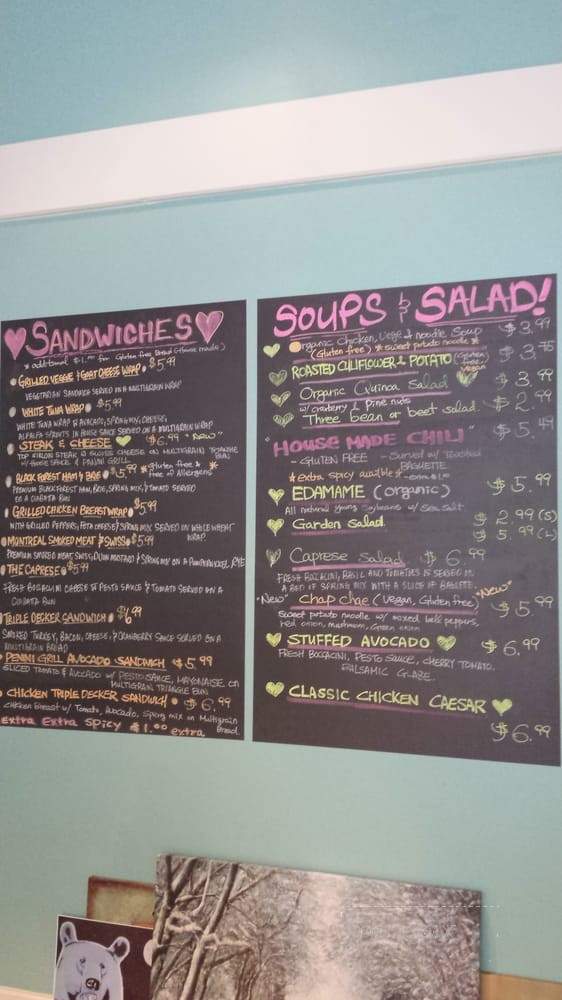 SANDWICHES
* additional $1.00 for Gluten free Bread (House made)
GRILLED VEGGE & GOAT CHEESE WRAP • $5.99
VEGETARIAN SANDWICH SERVED IN A MULTIGRAIN WRAP
WHITE TUNA WRAP • $5.99
WHITE TUNA WRAP W AVOCADO, SPRING MIX, CHEESE,
ALFALFA SPROUTS IN HOUSE SAUCE SERVED ON A MULTIGRAIN WRAP
STEAK & CHEESE $6.99 "NEW"
TOP SIRLOIN STEAK W SWISS CHEESE ON MULTIGRAIN TRIANGLE
W/ HOUSE SAUCE & PANINI GRILL. BUN
BLACK FOREST HAM & BRIE • $5.99 *Gluten free *
Free of Allergens
PREMIUM BLACK FOREST HAM, BRIE, SPRING MIX, & TOMATO SERVED
ON A CIABATTA BUN
GRILLED CHICKEN BREAST WRAP • $5.99
WITH GRILLED PEPPERS, FETA CHEESE & SPRING MIX SERVED ON WHOLE WHEAT
WRAP.
MONTREAL SMOKED MEAT & SWISS • $5.99
PREMIUM SMOKED MEAT, SWISS, DIJON MUSTARD & SPRING MIX ON A PUMPERNICKEL RYE
THE CAPRESE • $5.99
FRESH BOCCACINI CHEESE W PESTO SAUCE & TOMATO SERVED ON A
CIABATTA BUN
TRIPLE DECKER SANDWICH • $6.99
SMOKED TURKEY, BACON, CHEESE, & CRANBERRY SAUCE SERVED ON A
MULTIGRAIN BREAD
PENINI GRILL AVOCADO SANDWICH • $5.99
SLICED TOMATO & AVOCADO W/ PESTO SAUCE, MAYONAISE, ON
MULTIGRAIN TRIANGLE BUN
CHICKEN TRIPLE DECKER SANDWICH • $6.99
Chicken Breast w/ Tomato, Avocado, Spring mix on Multigrain
Bread.
Extra Extra Spicy $1.00 extra
SOUPS & SALAD!
Organic Chicken, Vege & noodle Soup $3.99
(Gluten free) * sweet potato noodle *
ROASTED CULIFLOWER & POTATO (Gluten free, vegan $3.75
Organic Quinoa Salad $3.99
w/ cranberry & pine nuts
Three bean or beet salad $2.99
"HOUSE MADE CHILI" $5.49
- GLUTEN FREE - Served w/ Toasted
BAGUETTE
* extra spicy availble *
EDAMAME (organic) $5.99
All natural young Soybeans w/ sea salt
Garden Salad $2.99 (S)
$5.99 (L)
Caprese Salad $6.99
FRESH BOCCACINI, BASIL AND TOMATOES IS SERVED IN
A BED OF SPRING MIX WITH A SLICE OF BAGUETTE.
"New" Chap chae (Vegan, Gluten free) "New" $5.99
Sweet potato noodle w/ mixed bell peppers,
red onion, mushroom, Green onion
STUFFED AVOCADO $6.99
FRESH BOCCACINI, PESTO SAUCE, CHERRY TOMATO,
BALSAMIC GLAZE
CLASSIC CHICKEN CAESAR
$6.99